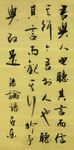 吾於人也聽其言而信
其行今吾於人也聽
其言而觀其行於予
與改是 論語